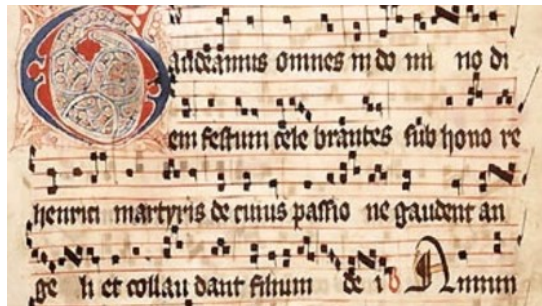 Gaudeamus omnes in do mi no di
em festum cele brantes sub hono re
henrici martyris de cuius passio ne gaudent an
ge li et collau dant filium de i V Annun